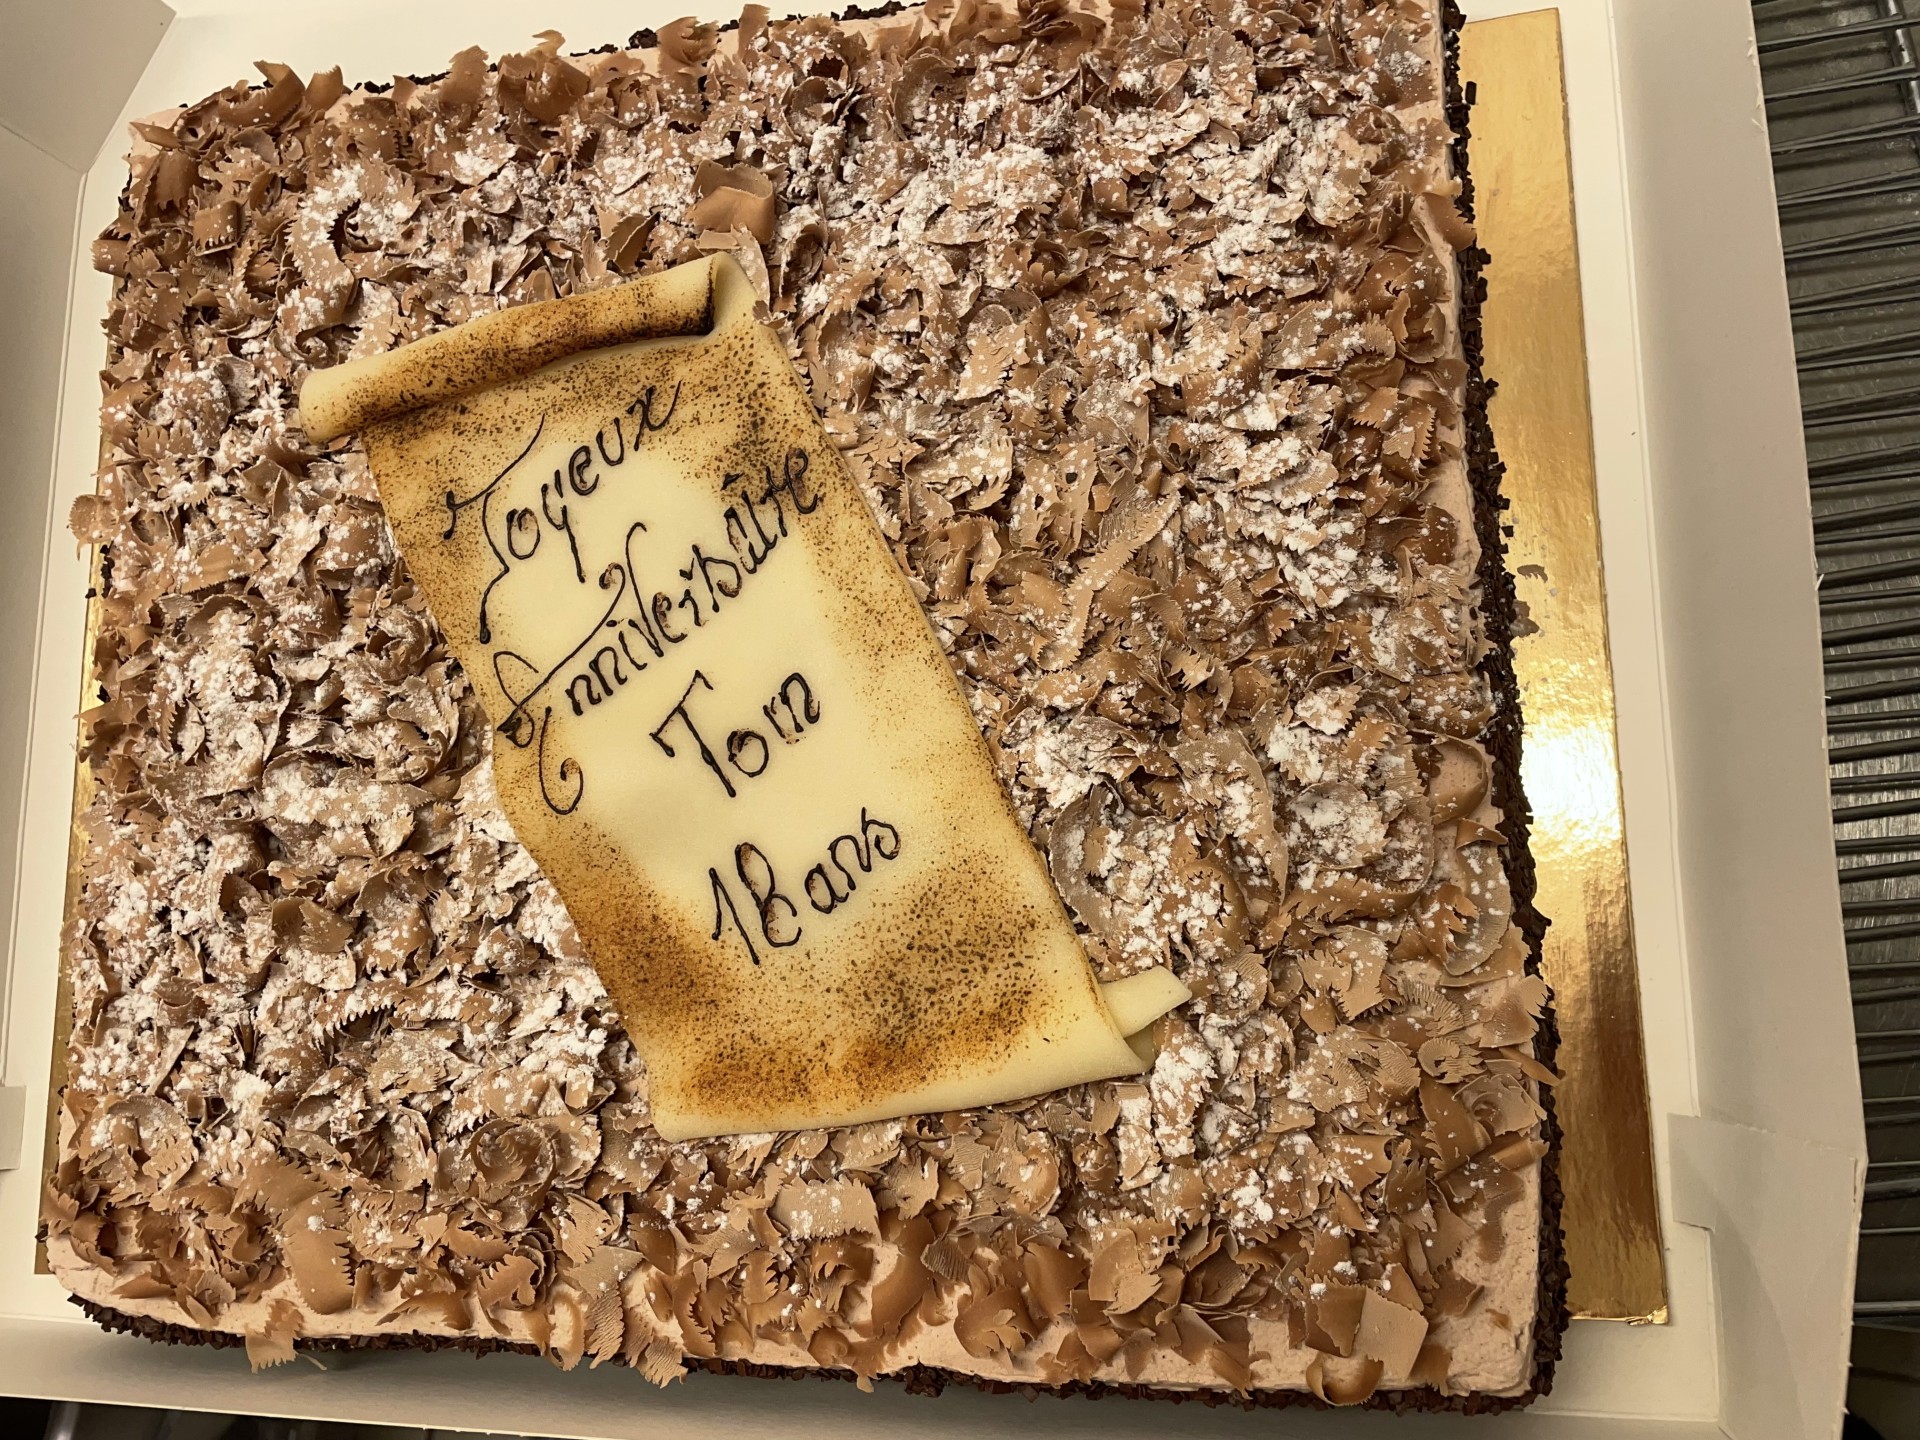 Joyeux
Anniversaire
Tom
18 ans